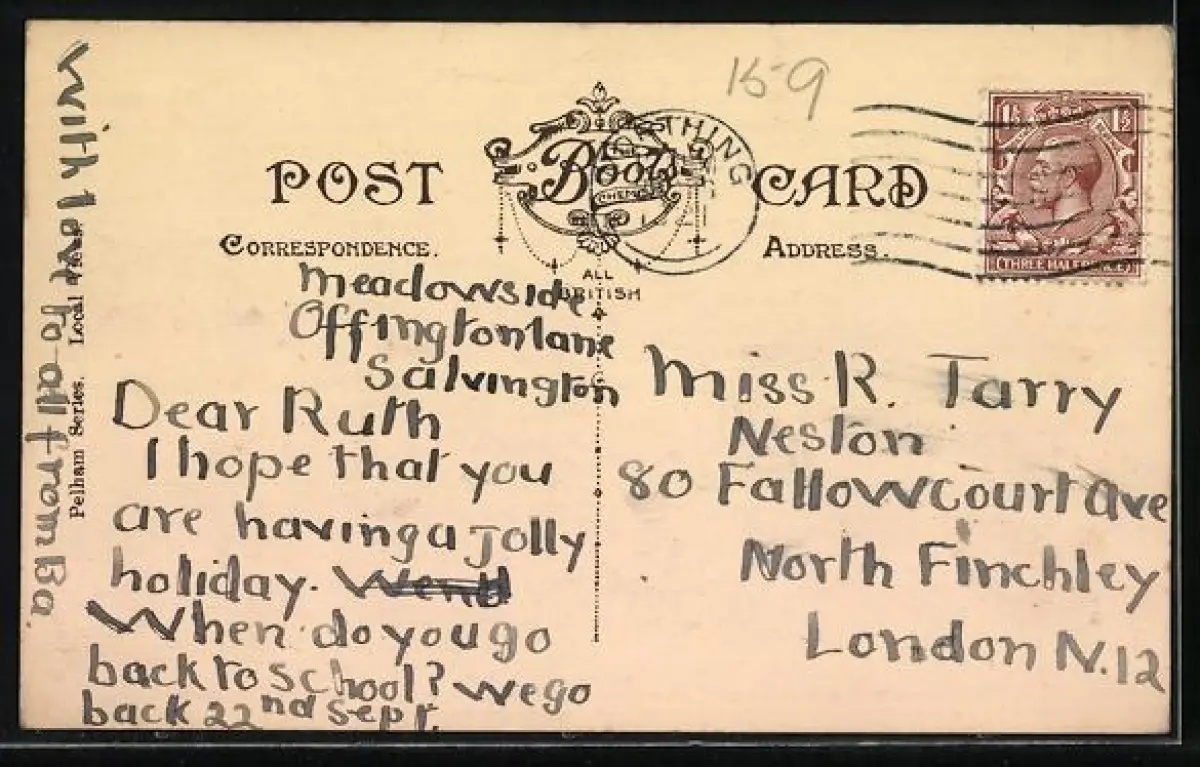 15-9
POST CARD
THE
Boots
CHEMISTS
WORTHING
1½ 1½
THREE HALFPENCE
CORRESPONDENCE.
ADDRESS.
ALL
BRITISH
Meadowside
Offington lane
Salvington
Dear Ruth
I hope that you
are having a jolly
holiday. Wend
When do you go
back to school? We go
back 22nd Sept.
Miss R. Tarry
Neston
80 Fallowcourt Ave
North Finchley
London N.12
With love to all from Ba.
Pelham Series. Local View.